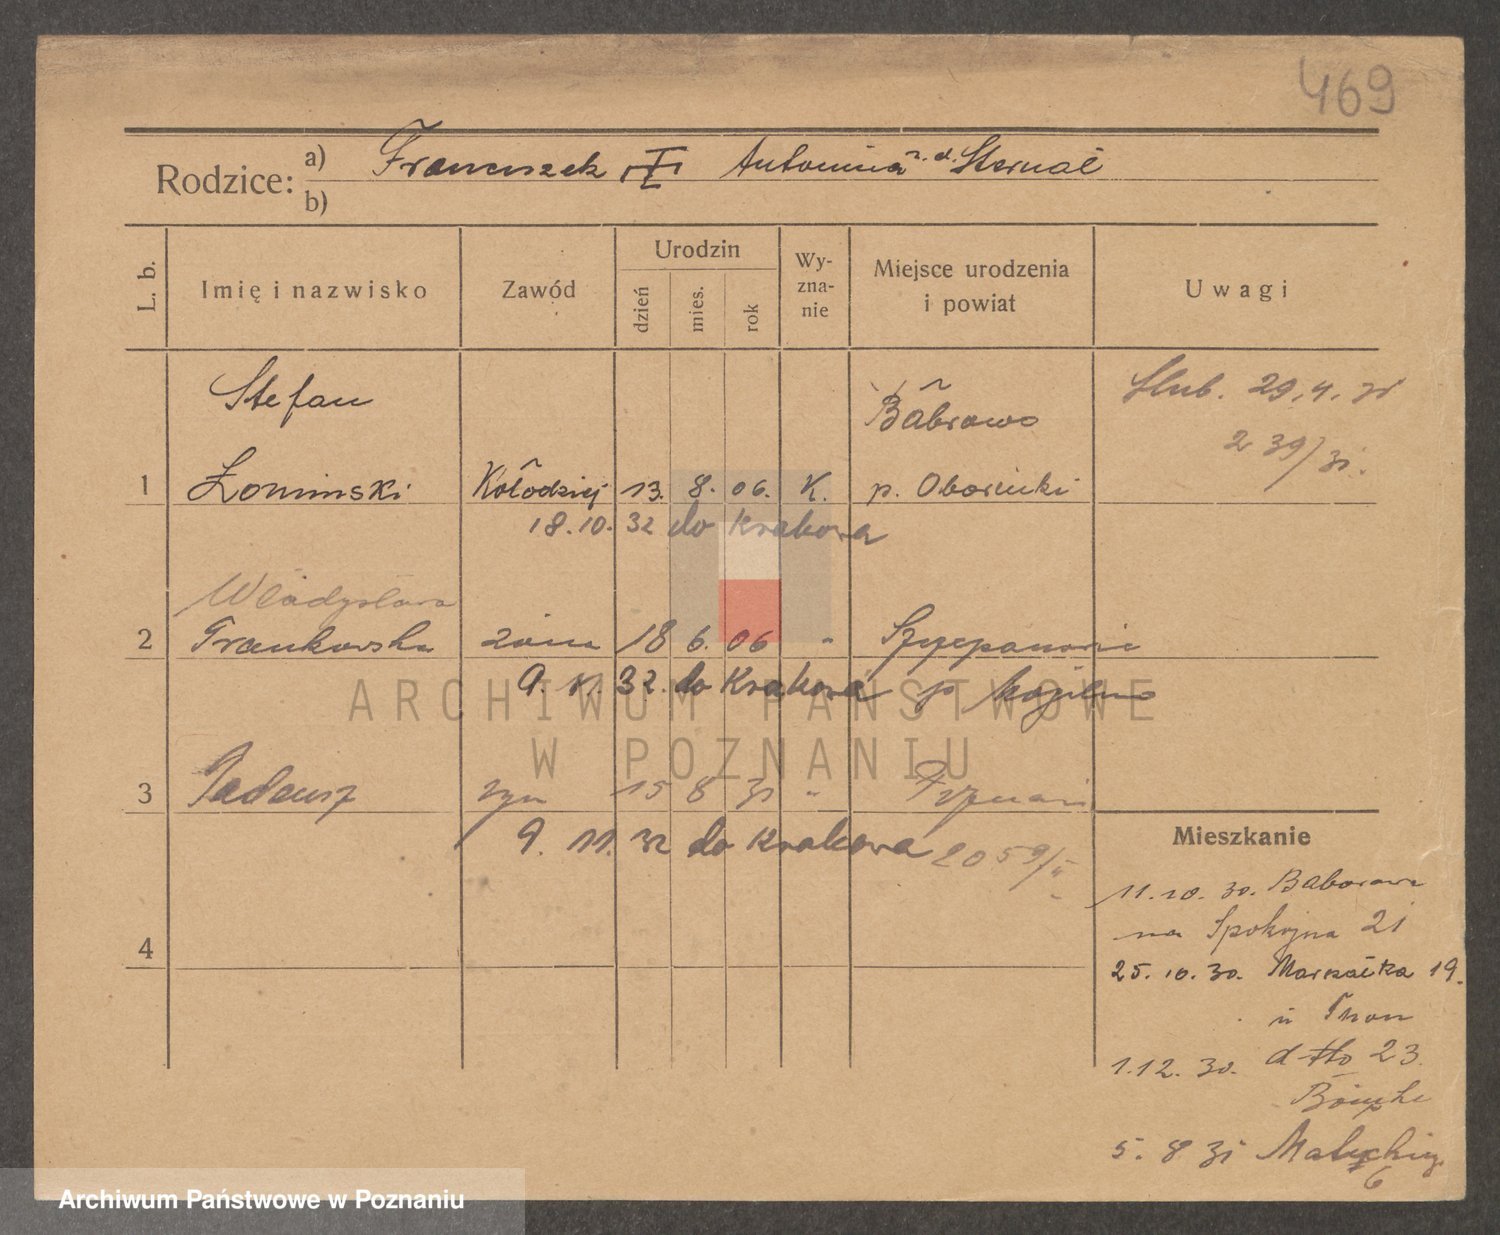 469
Rodzice: a) Franciszek Antonina z. d. Sternal
b)
L. b. Imię i nazwisko Zawód Urodzin dzień mies. rok Wyznanie Miejsce urodzenia i powiat Uwagi
Stefan Bąbrowo Ślub. 29. 4. 31
239/31.
1 Łomiński Kołodziej 13. 8. 06. K. p. Oborniki
18.10. 32 do Krakowa
Władysława
2 Frankowska żona 18 6. 06 "
9. 11. 32. do Krakowa p
3 Tadeusz syn 15 8 31 " Poznań
9. 11. 32 do Krakowa 2059/
Mieszkanie
11.10. 30. Baborowa
na Spokojna 21
4
25. 10. 30. Marszałka 19.
u Thom
1.12. 30. dtto 23.
5. 8 31 Małeckiego
6
ARCHIWUM PAŃSTWOWE
W POZNANIU
Archiwum Państwowe w Poznaniu